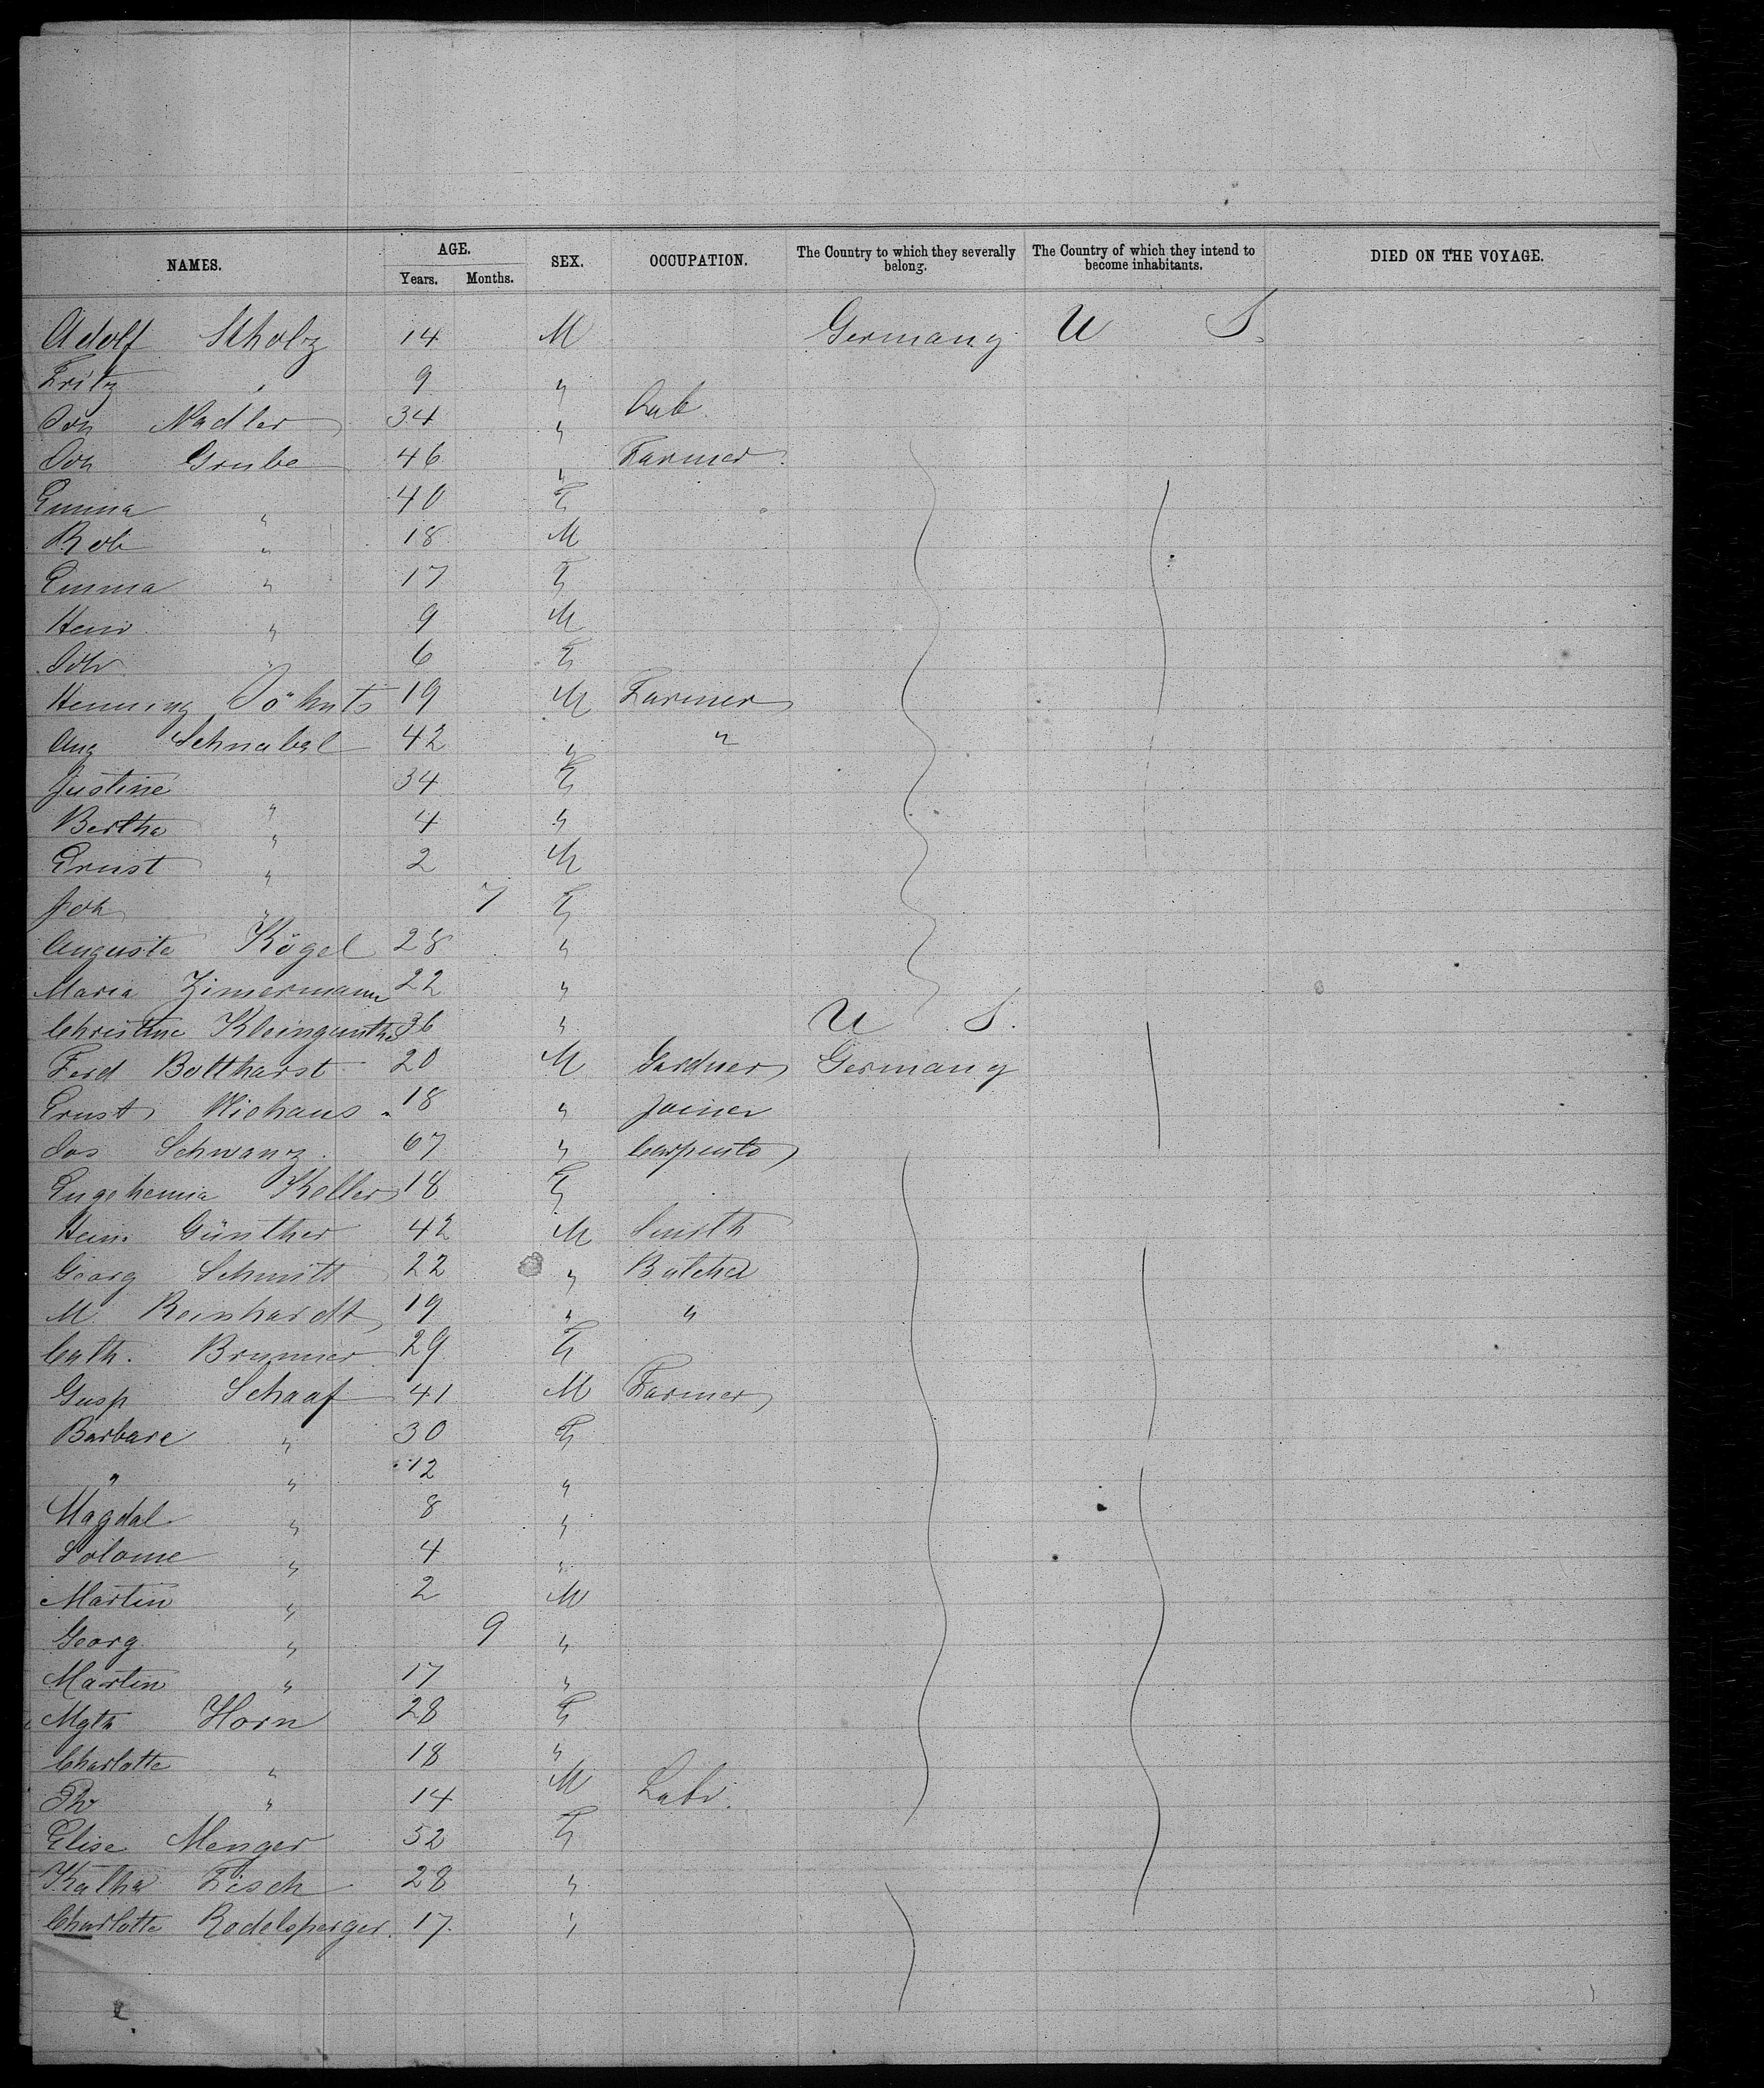 NAMES. AGE. SEX. OCCUPATION. The Country to which they severally belong. The Country of which they intend to become inhabitants. DIED ON THE VOYAGE.
Years. Months.
Adolf 14 M Germany U S.
Fritz " 9 "
Joh Nadler 34 " Lab
Joh Grube 46 " Farmer
Emma " 40 F
Rob " 18 M
Emma " 17 F
Heinr " 9 M
Joh " 6 F
Henning 19 M Farmer
Aug Schnabel 42 " "
Justine " 34 F
Bertha " 4 "
Ernst " 2 M
Joh " 7 F
Auguste Kögel 28 "
Maria Zimermann 22 "
Christine Kleingunther 36 " U S.
Ferd Boltharst 20 M Gardner Germany
Ernst Niehaus 18 " Joiner
Jos Schwanz 67 " Carpenter
Keller 18 F
Heinr Günther 42 M Smith
Georg Schmitt 22 " Butcher
M Reinhardt 19 " "
Cath. Brunner 29 F
Gasp Schaaf 41 M Farmer
Barbare " 30 F
" " 12 "
Magdal " 8 "
Solome " 4 "
Martin " 2 M
Georg " 9 "
Martin " 17 "
Mgth Horn 28 F
Charlotte " 18 "
Ph " 14 M Labr.
Elise Menger 52 F
Katha Fisch 28 "
Charlotte Rodelsperger. 17. "